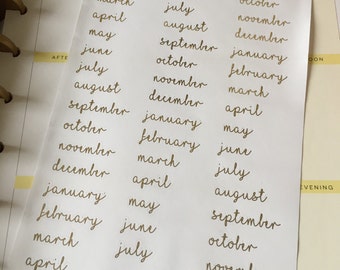 march
april
may
june
july
august
september
october
november
december
january
february
march
april
july
august
september
october
november
december
january
february
march
april
may
june
july
october
november
december
january
february
march
april
may
june
july
august
september
october
november
AFTE
OON
EVENING